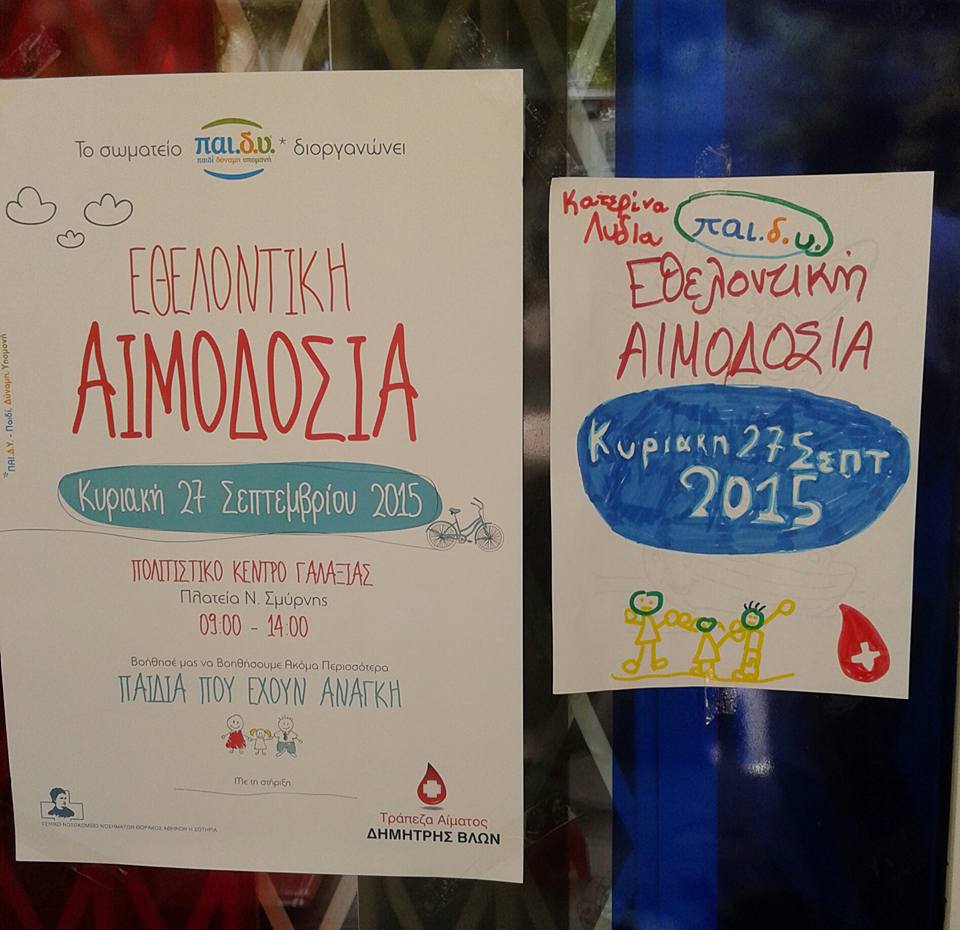 Το σωματείο παι.δ.υ.* διοργανώνει
παιδί δύναμη υπομονή
ΕΘΕΛΟΝΤΙΚΗ
ΑΙΜΟΔΟΣΙΑ
*ΠΑΙ.Δ.Υ. - Παιδί, Δύναμη, Υπομονή
Κυριακή 27 Σεπτεμβρίου 2015
ΠΟΛΙΤΙΣΤΙΚΟ ΚΕΝΤΡΟ ΓΑΛΑΞΙΑΣ
Πλατεία Ν. Σμύρνης
09:00 - 14:00
Βοήθησέ μας να Βοηθήσουμε Ακόμα Περισσότερα
ΠΑΙΔΙΑ ΠΟΥ ΕΧΟΥΝ ΑΝΑΓΚΗ
Με τη στήριξη
ΓΕΝΙΚΟ ΝΟΣΟΚΟΜΕΙΟ ΝΟΣΗΜΑΤΩΝ ΘΩΡΑΚΟΣ ΑΘΗΝΩΝ Η ΣΩΤΗΡΙΑ
Τράπεζα Αίματος
ΔΗΜΗΤΡΗΣ ΒΛΩΝ
Κατερίνα
Λυδία
παι.δ.υ.
Εθελοντική
ΑΙΜΟΔΟΣΙΑ
Κυριακη 27 Σεπτ.
2015